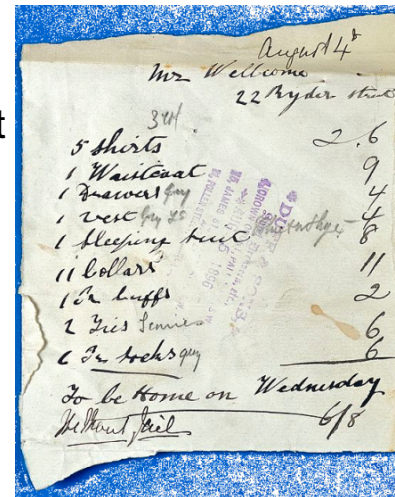 t
August 4th
Mr Wellcome
22 Ryder Street
3rd
5 Shirts 2.6
1 Waistcoat 9
1 Drawers grey 4
1 Vest grey 4
1 Sleeping Suit 8
11 Collars 11
1 Pr Cuffs 2
2 Ties 6
6 Pr Socks grey 6
To be Home on Wednesday
Without fail 6/8